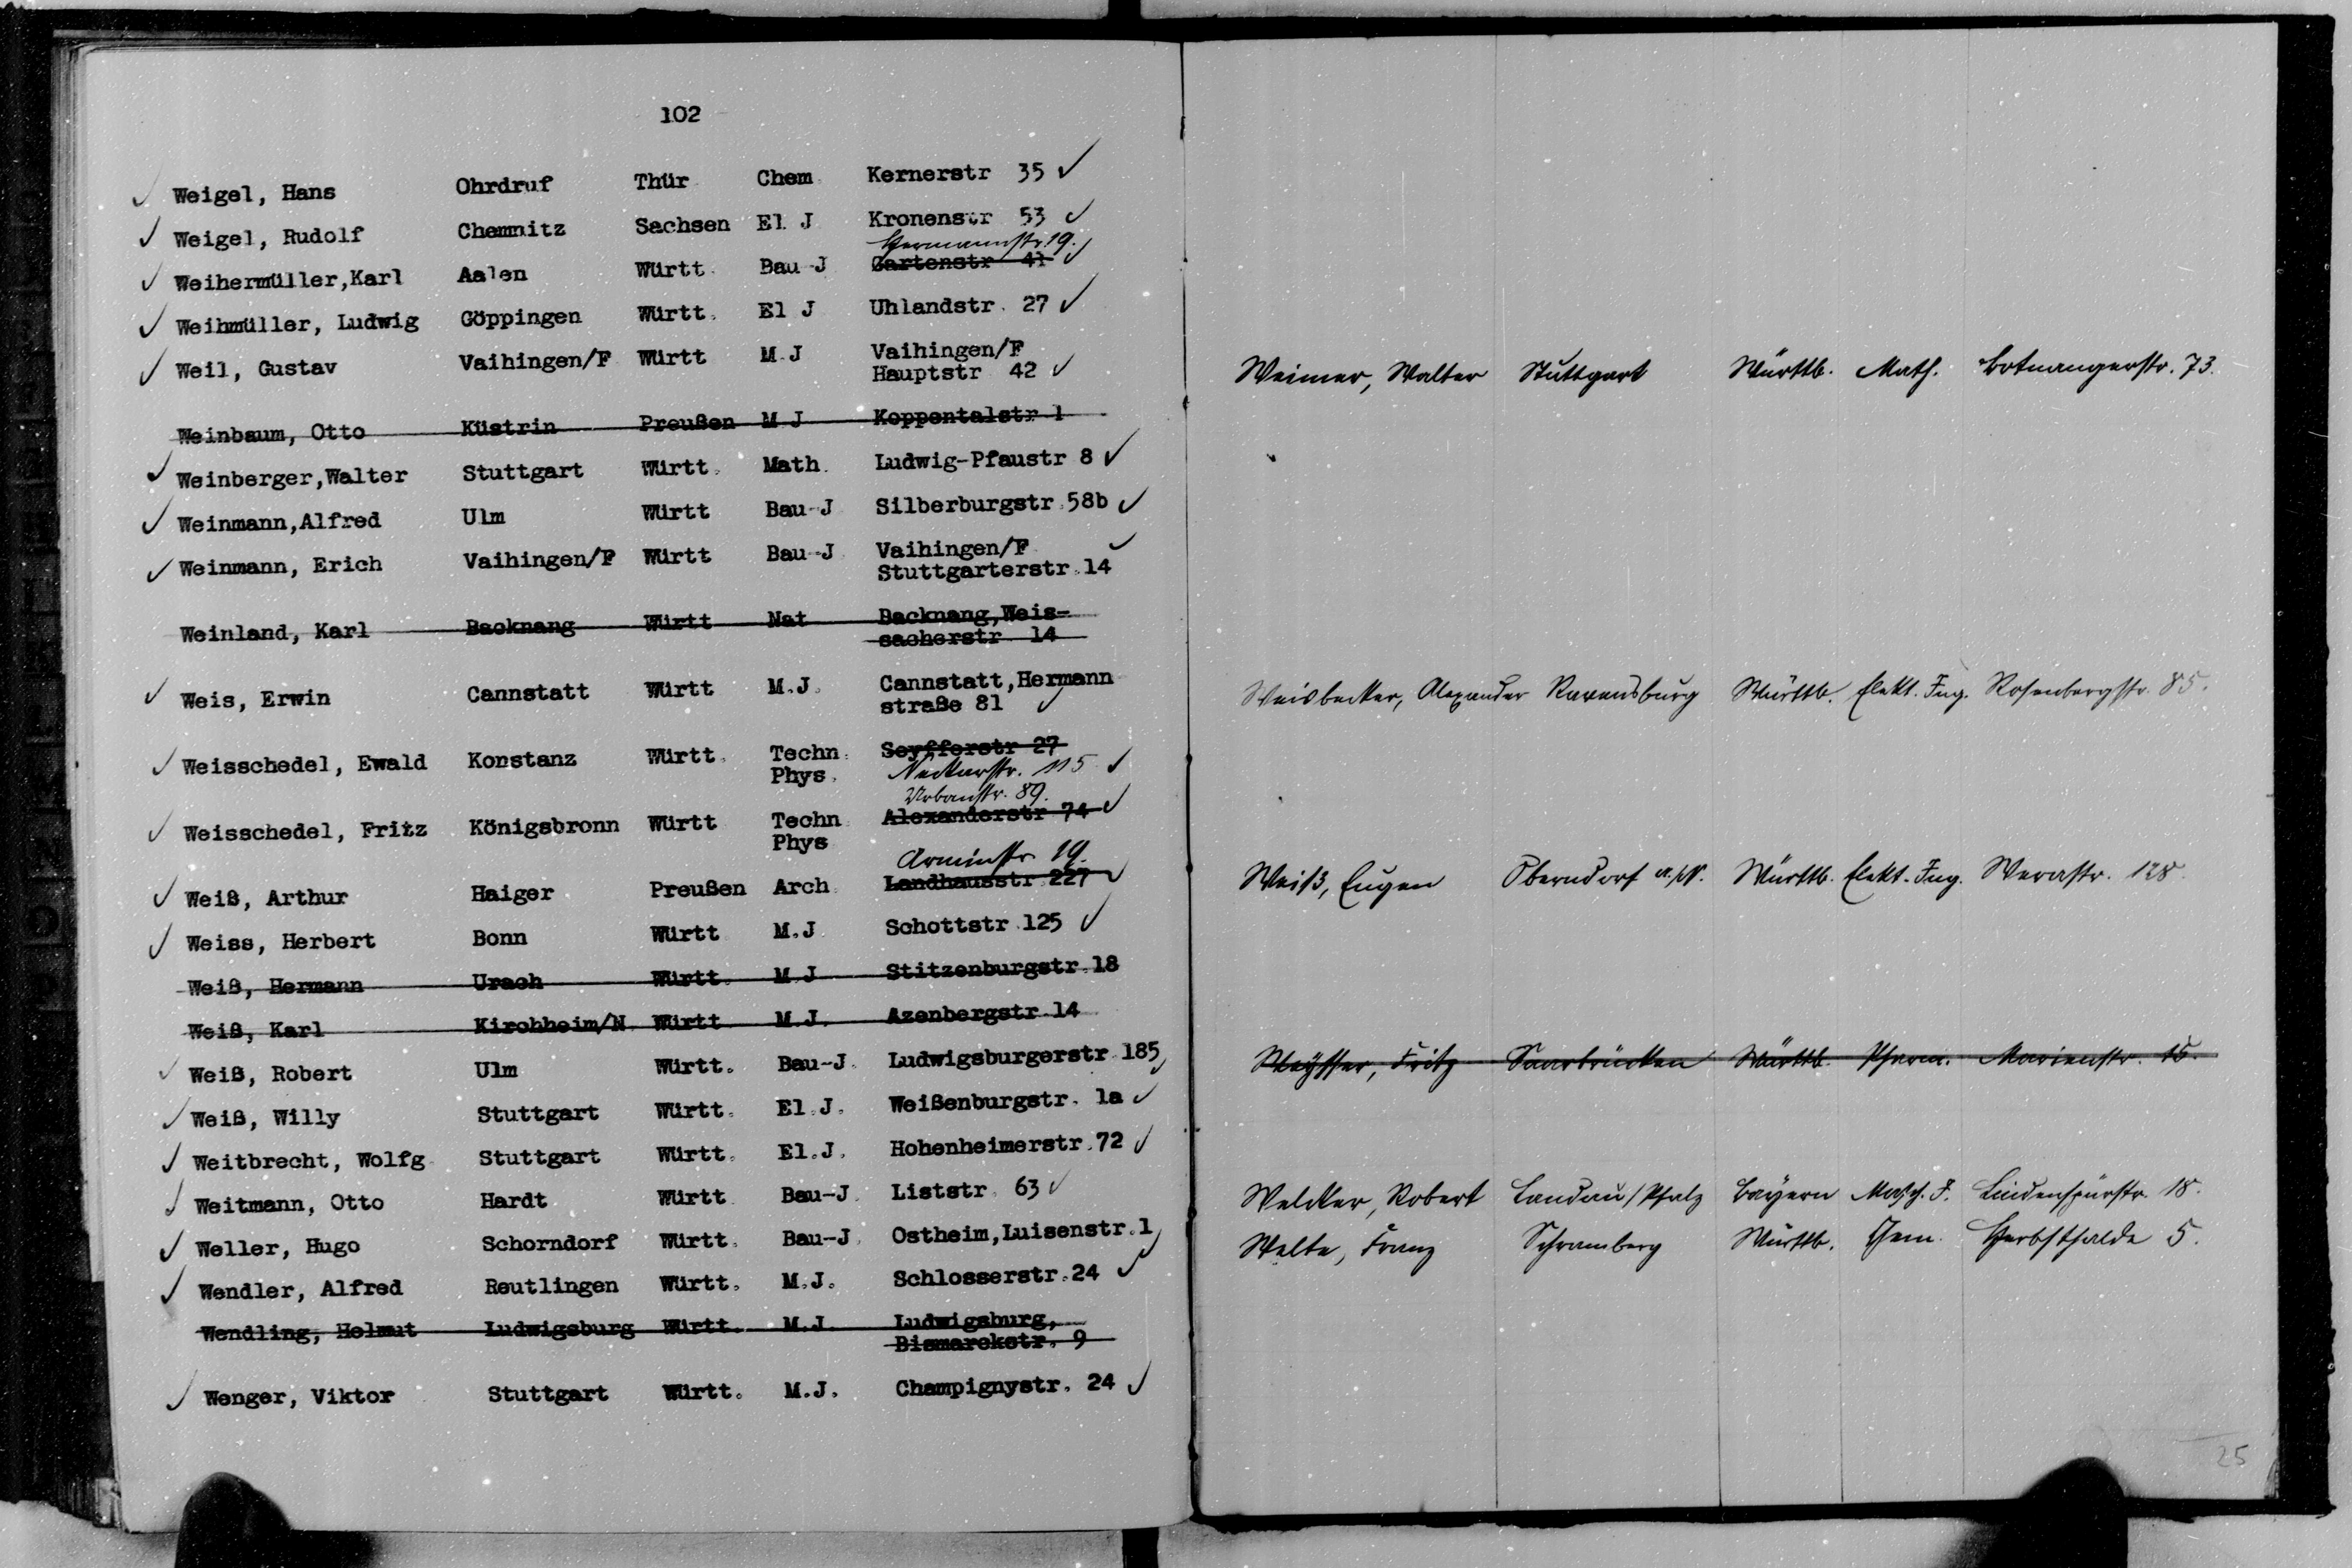 102
Weigel, Hans Ohrdruf Thür Chem Kernerstr 35 ✓
Weigel, Rudolf Chemnitz Sachsen El J Kronenstr 53 ✓
Hermannstr. 19.
Weihermüller,Karl Aalen Württ Bau-J Gartenstr 41 ✓
Weihmüller, Ludwig Göppingen Württ. El J Uhlandstr. 27 ✓
Weil, Gustav Vaihingen/F Württ M.J Vaihingen/F
Hauptstr 42 ✓
Weinbaum, Otto Küstrin Preußen M J Koppentalstr 1
Weinberger,Walter Stuttgart Württ. Math. Ludwig-Pfaustr 8 ✓
Weinmann,Alfred Ulm Württ Bau-J Silberburgstr.58b ✓
Weinmann, Erich Vaihingen/F Württ Bau-J Vaihingen/F ✓
Stuttgarterstr.14
Weinland, Karl Backnang Württ Nat Backnang,Weis-
sacherstr 14
Weis, Erwin Cannstatt Württ M.J. Cannstatt,Hermann
straße 81 ✓
Weisschedel, Ewald Konstanz Württ. Techn. Seyfferstr 27
Phys. Neckarstr. 115 ✓
Urbanstr. 89.
Weisschedel, Fritz Königsbronn Württ Techn Alexanderstr 74 ✓
Phys
Arminstr. 19.
Weiß, Arthur Haiger Preußen Arch Landhausstr 227 ✓
Weiss, Herbert Bonn Württ M.J Schottstr.125 ✓
Weiß, Hermann Urach Württ. M J Stitzenburgstr.18
Weiß, Karl Kirchheim/N Württ M.J. Azenbergstr.14
Weiß, Robert Ulm Württ. Bau-J. Ludwigsburgerstr.185 ✓
Weiß, Willy Stuttgart Württ. El.J. Weißenburgstr. 1a ✓
Weitbrecht, Wolfg Stuttgart Württ. El.J. Hohenheimerstr.72 ✓
Weitmann, Otto Hardt Württ Bau-J. Liststr. 63 ✓
Weller, Hugo Schorndorf Württ. Bau-J. Ostheim,Luisenstr.1 ✓
Wendler, Alfred Reutlingen Württ. M.J. Schlosserstr.24 ✓
Wendling, Helmut Ludwigsburg Württ. M.J. Ludwigsburg,
Bismarckstr. 9
Wenger, Viktor Stuttgart Württ. M.J. Champignystr. 24 ✓
Weimer, Walter Stuttgart Württb. Math. Botnangerstr. 73.
Weisbecker, Alexander Ravensburg Württb. Elekt. Ing. Rosenbergstr. 85.
Weiß, Eugen Oberndorf a./N. Württb. Elekt. Ing. Werastr. 128.
Fritz Saarbrücken Württb. Pharm. Marienstr.
Welcker, Robert Landau/Pfalz Bayern Masch. I. Lindenspürstr. 18.
Welte, Franz Schramberg Württb. Chem. Herbsthalde 5.
25